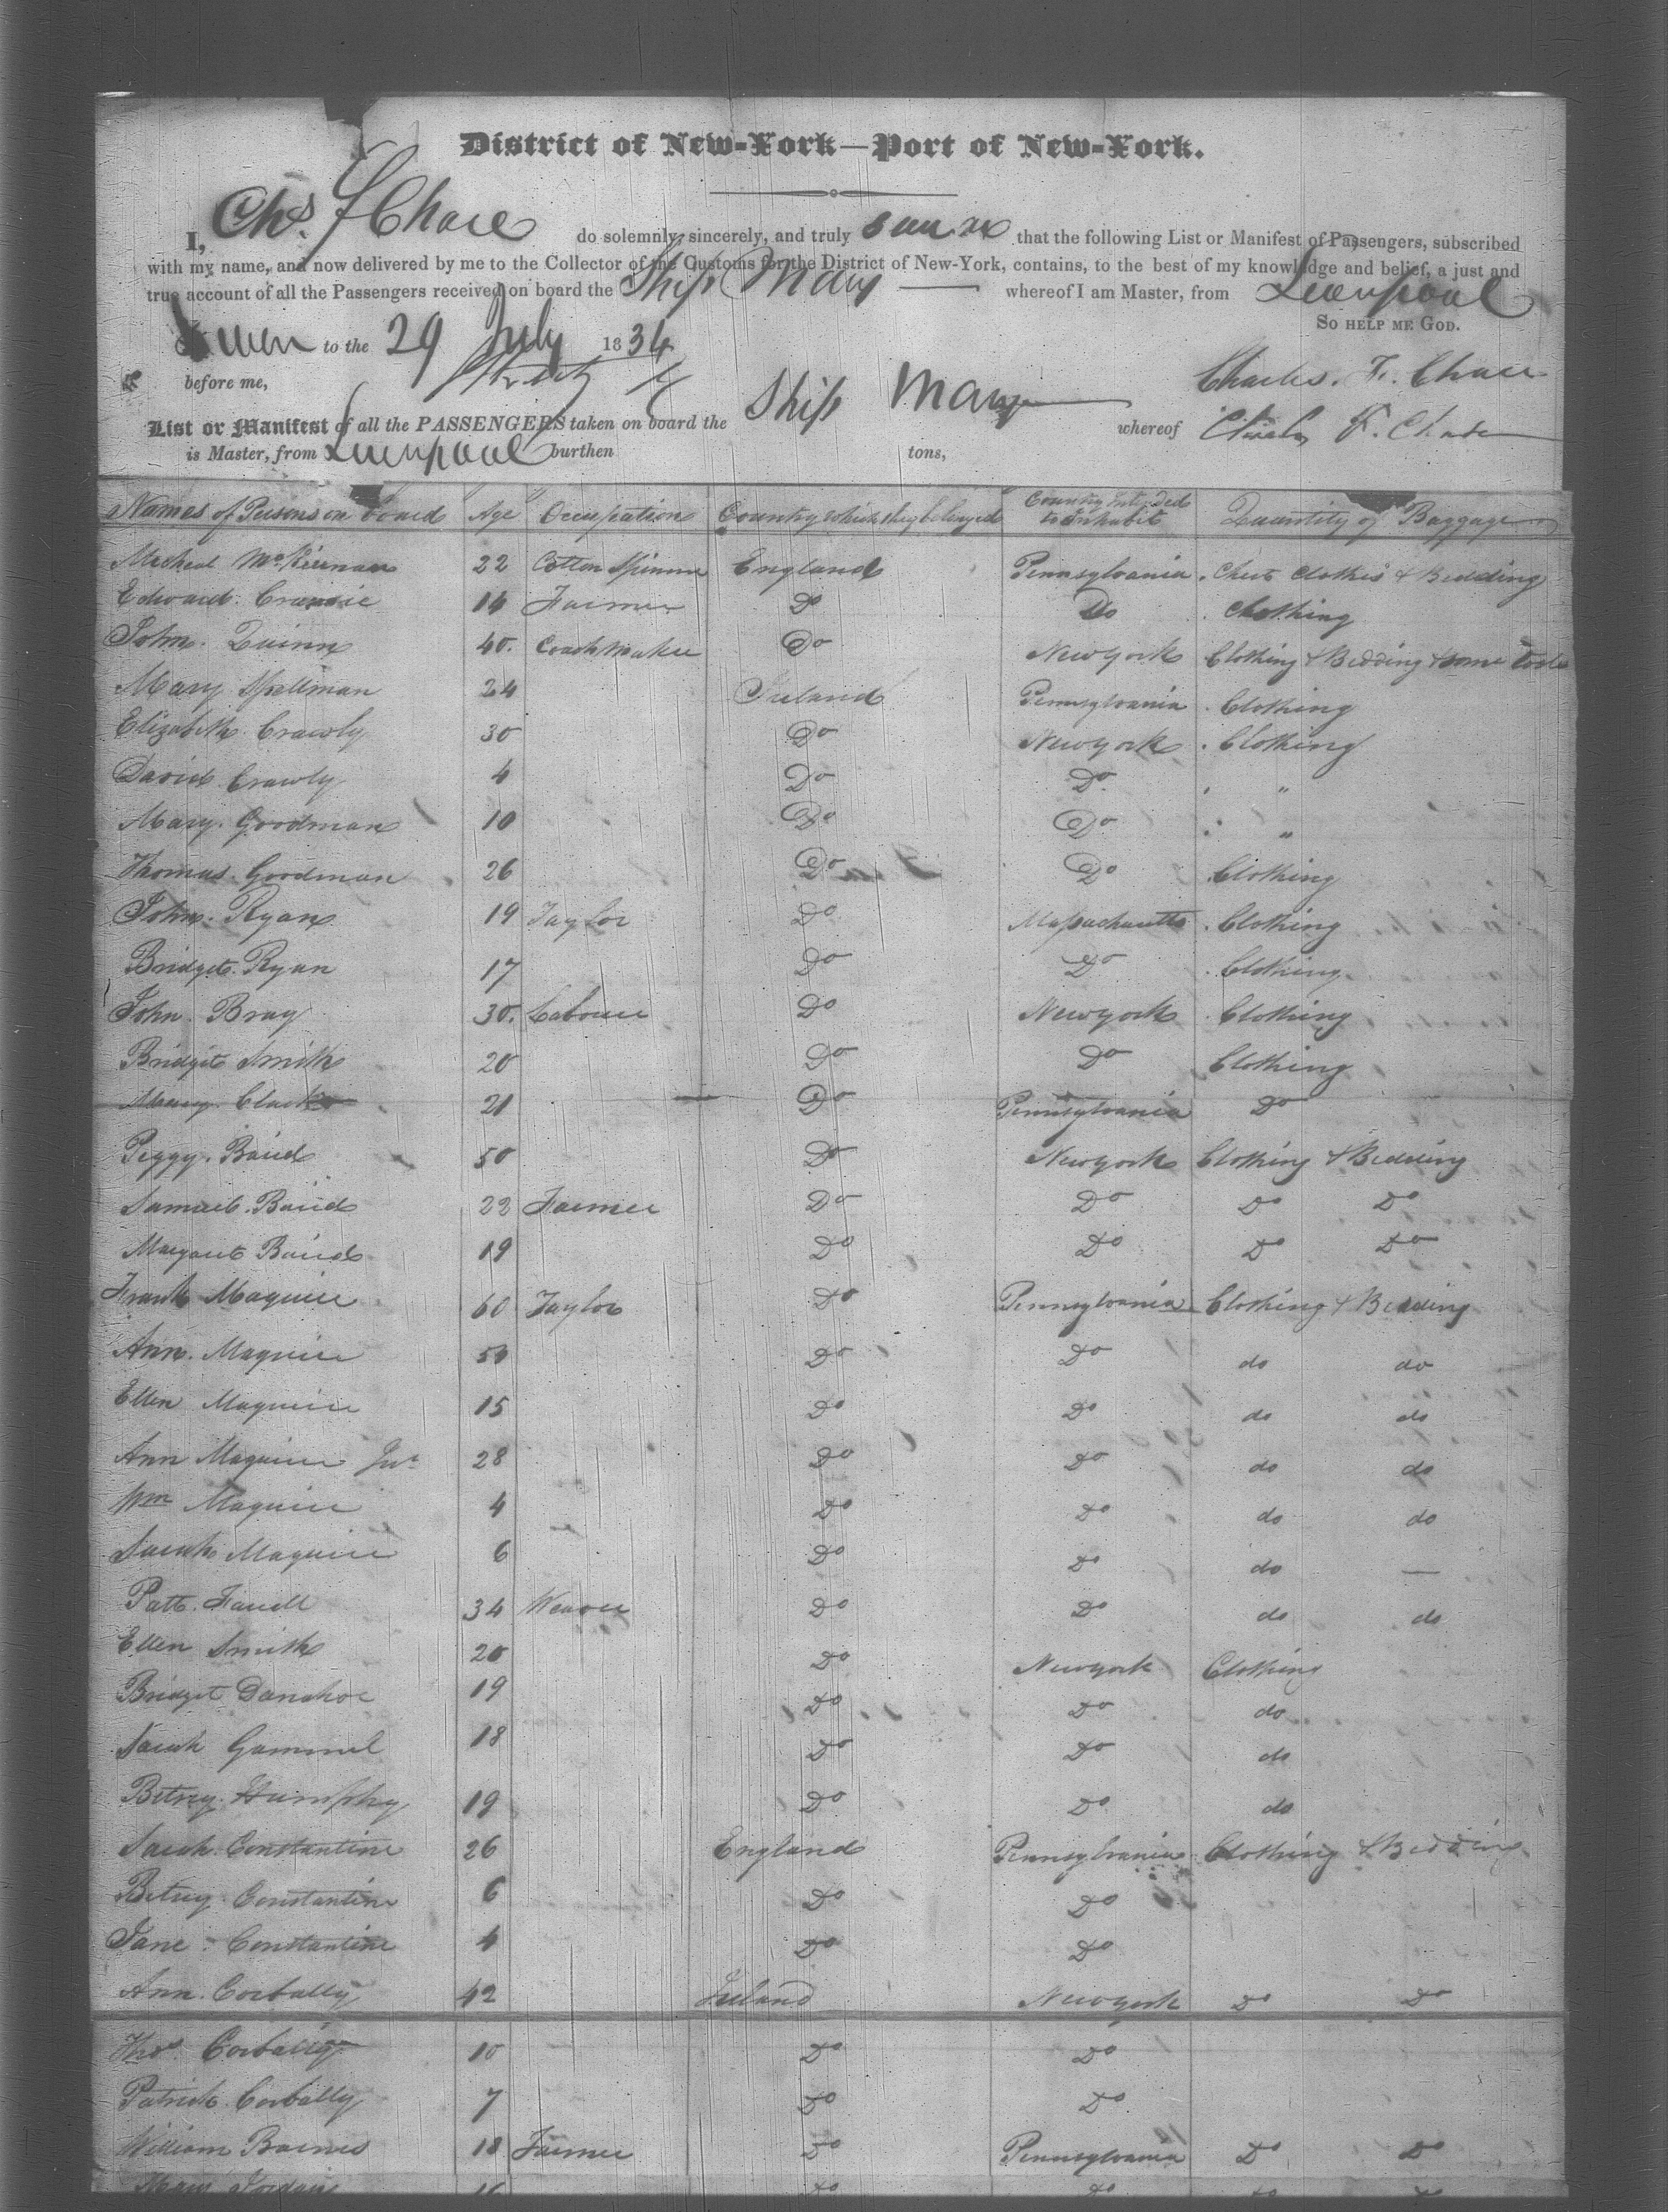 District of New-York—Port of New-York.
I, Chs. F Chase do solemnly, sincerely, and truly swear that the following List or Manifest of Passengers, subscribed
with my name, and now delivered by me to the Collector of the Customs for the District of New-York, contains, to the best of my knowledge and belief, a just and
true account of all the Passengers received on board the Ship Mary whereof I am Master, from Liverpool
So help me God.
Sworn to the 29 July 1834
before me,
Charles. F. Chase
List or Manifest of all the PASSENGERS taken on board the Ship Mary whereof Charles F. Chase
is Master, from Liverpool burthen tons,
Names of Persons on board Age Occupation Country which they belonged Country Intended to Inhabit Quantity of Baggage
Micheal McKiernan 22 Cotton Spinner England Pennsylvania . Chest Clothes & Bedding
Edward. 14 Farmer Do Do . Clothing
John. Quinn 40. Coach Maker Do New York Clothing & Bedding & some tools
Mary Spellman 24 Ireland Pennsylvania . Clothing
Elizabeth Crawly 30 Do New York . Clothing
David Crawly 4 Do Do "
Mary. Goodman 10 Do Do "
Thomas. Goodman 26 Do Do Clothing
John. Ryan 19 Taylor Do Massachusetts . Clothing
Bridget. Ryan 17 Do Do . Clothing
John. Bray 30. Labourer Do New York . Clothing
Bridget Smith 20 Do Do Clothing
Mary. Clark 21 Do Pennsylvania Do
Peggy. Baird 50 Do New York Clothing & Bedding
Samuel. Baird 22 Farmer Do Do Do Do
Margaret Baird 19 Do Do Do Do
Frank Maguire 60 Taylor Do Pennsylvania Clothing & Bedding
Ann. Maguire Do Do do do
Ellen Maguire 15 Do Do do do
Ann Maguire Jur 28 Do Do do do
Wm Maguire 4 Do Do do do
Sarah Maguire 6 Do Do do —
Patt. Farrell 34 Weaver Do Do do do
Ellen Smith 20 Do New York Clothing
Bridget Donahoe 19 Do Do do
Sarah Gammel 18 Do Do do
Betsey. Humphy 19 Do Do do
Sarah. Constantine 26 England Pennsylvania Clothing & Bedding
Betsey. Constantine 6 Do Do
Jane. Constantine 4 Do Do
Ann. Corbally 42 Ireland New York Do Do
Thos Corbally 10 Do Do
Patrick. Corbally 7 Do Do
William Barnes 18 Farmer Do Pennsylvania Do Do
Mary Jordan 16 Do Do Do Do